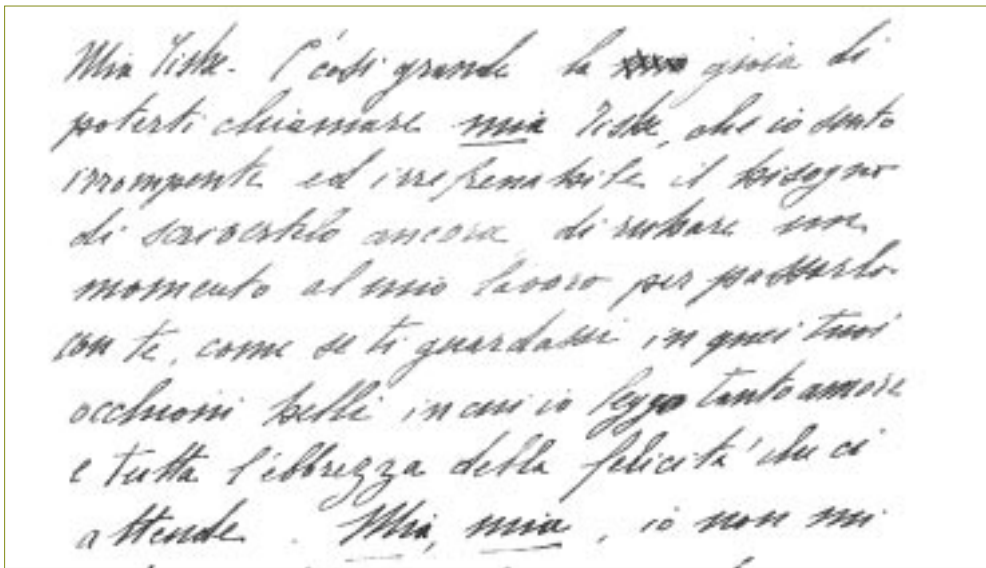 Mia Tiske. È così grande la gioia di
poterti chiamare mia Tiske, che io sento
irrompente ed irrefrenabile il bisogno
di scrivertelo ancora, di rubare un
momento al mio lavoro per passarlo
con te, come se ti guardassi in quei tuoi
occhioni belli in cui io leggo tanto amore
e tutta l'ebbrezza della felicità che ci
attende. Mia, mia, io non mi